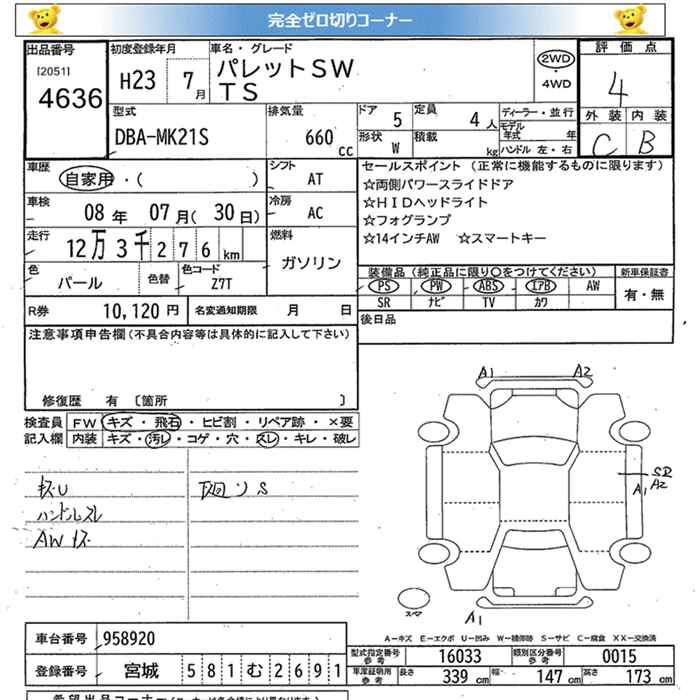 完全ゼロ切りコーナー
出品番号
[2051]
4636
初度登録年月
H23 7月
車名・グレード
パレットSW
TS
2WD
・
4WD
評価点
4
外装 内装
C B
型式
DBA-MK21S
排気量
660 cc
ドア 5
定員 4人
形状 W
積載 kg
ディーラー・並行
モデル年式 年
ハンドル 左・右
車歴
自家用・( )
シフト AT
車検
08年 07月(30日)
冷房 AC
走行
12万3千276km
燃料
ガソリン
色
パール
色替
色コード
Z7T
セールスポイント (正常に機能するものに限ります)
☆両側パワースライドドア
☆HIDヘッドライト
☆フォグランプ
☆14インチAW ☆スマートキー
装備品(純正品に限り○をつけてください)
PS PW ABS エアB AW
SR ナビ TV カワ
新車保証書
有・無
R券 10,120円
名変通知期限 月 日
後日品
注意事項申告欄(不具合内容等は具体的に記入して下さい)
修復歴 有 [箇所 ]
検査員記入欄
FW キズ・飛石・ヒビ割・リペア跡・×要
内装 キズ・汚レ・コゲ・穴・スレ・キレ・破レ
キズU
ハンドルスレ
AWキズ
下回りS
A1 A2
A1
SD
A2
A1
スマ
A-キズ E-エクボ U-凹み W-補修跡 S-サビ C-腐食 XX-交換済
車台番号 958920
登録番号 宮城 581む2691
型式指定番号
参考
16033
類別区分番号
参考
0015
車庫証明用
参考
長さ 339cm
幅 147cm
高さ 173cm